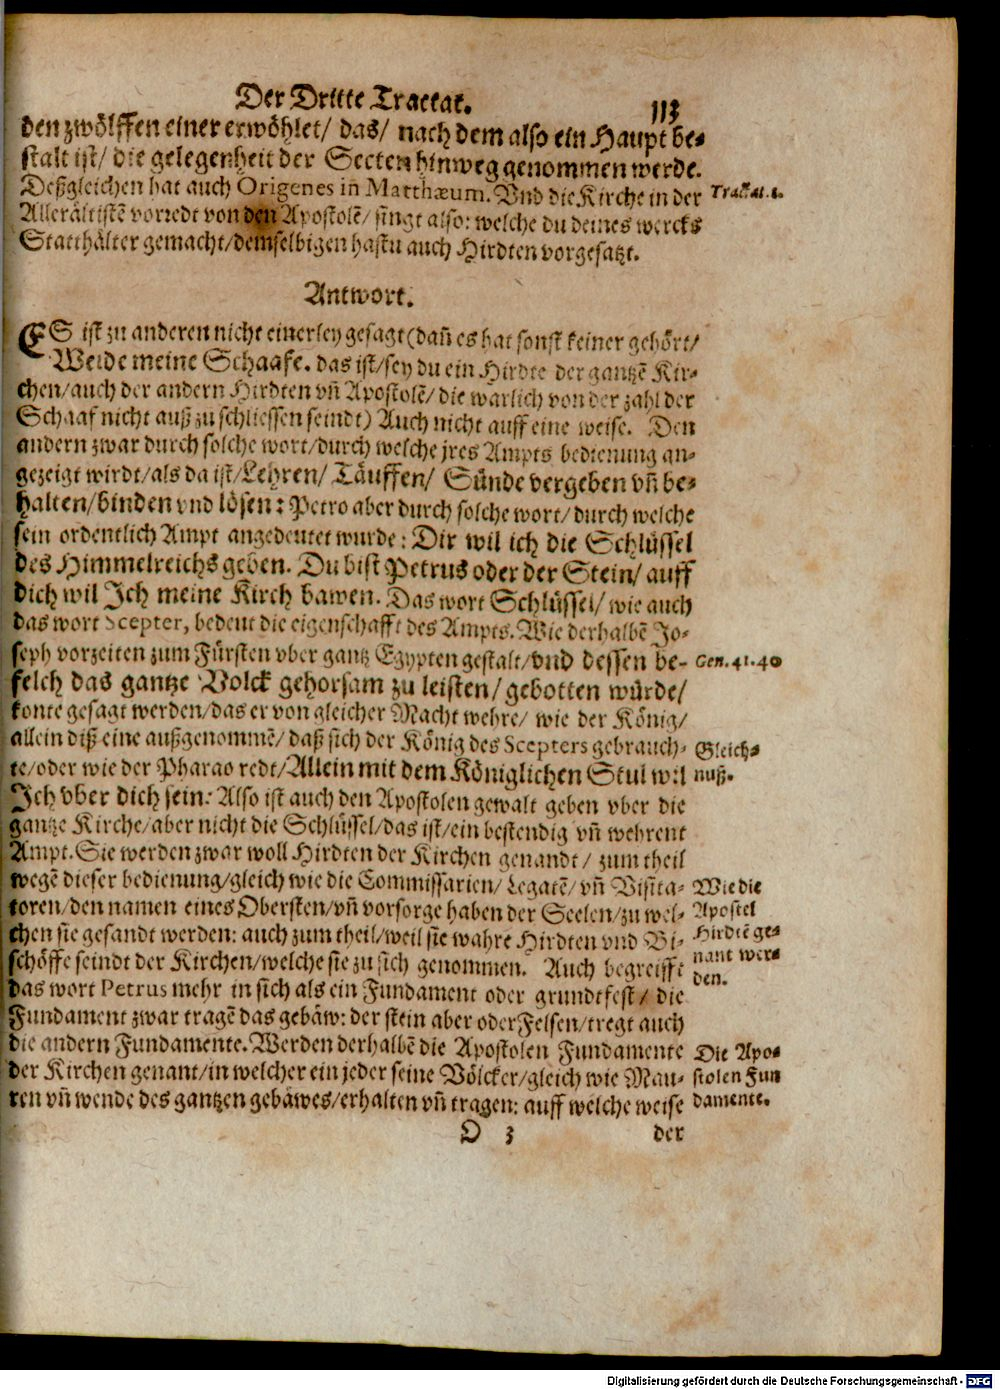 Der Dritte Tractat.
113
den zwölffen einer erwöhlet/ das/ nach dem also ein Haupt be-
stalt ist/ die gelegenheit der Secten hinweg genommen werde.
Deßgleichen hat auch Origenes in Matthæum. Vnd die Kirche in der
Tractat. 1.
Allerältistē vorredt von den Apostolē/ singt also: welche du deines wercks
Statthälter gemacht/ demselbigen hastu auch Hirdten vorgesatzt.
Antwort.
ES ist zu anderen nicht einerley gesagt (dañ es hat sonst keiner gehört/
Weide meine Schaafe. das ist/ sey du ein Hirdte der gantzē Kir-
chen/ auch der andern Hirdten vñ Apostolē/ die warlich von der zahl der
Schaaf nicht auß zu schliessen seindt) Auch nicht auff eine weise. Den
andern zwar durch solche wort/ durch welche jres Ampts bedienung an-
gezeigt wirdt/ als da ist/ Lehren/ Täuffen/ Sünde vergeben vñ be-
halten/ binden vnd lösen: Petro aber durch solche wort/ durch welche
sein ordentlich Ampt angedeutet wurde: Dir wil ich die Schlüssel
des Himmelreichs geben. Du bist Petrus oder der Stein/ auff
dich wil Ich meine Kirch bawen. Das wort Schlüssel/ wie auch
das wort Scepter, bedeut die eigenschafft des Ampts. Wie derhalbē Jo-
seph vorzeiten zum Fürsten vber gantz Egypten gestalt/ vnd dessen be-
Gen. 41. 40
felch das gantze Volck gehorsam zu leisten/ gebotten würde/
konte gesagt werden/ das er von gleicher Macht wehre/ wie der König/
allein diß eine außgenommē/ daß sich der König des Scepters gebrauch-
Gleich-
te/ oder wie der Pharao redt/ Allein mit dem Königlichen Stul wil
nuß.
Ich vber dich sein: Also ist auch den Apostolen gewalt geben vber die
gantze Kirche/ aber nicht die Schlüssel/ das ist/ ein bestendig vñ wehrent
Ampt. Sie werden zwar woll Hirdten der Kirchen genandt/ zum theil
wegē dieser bedienung/ gleich wie die Commissarien/ Legatē/ vñ Visita-
Wie die
toren/ den namen eines Obersten/ vñ vorsorge haben der Seelen/ zu wel-
Apostel
chen sie gesandt werden: auch zum theil/ weil sie wahre Hirdten vnd Bi-
Hirdtē ge-
schöffe seindt der Kirchen/ welche sie zu sich genommen. Auch begreifft
nant wer-
den.
das wort Petrus mehr in sich als ein Fundament oder grundtfest/ die
Fundament zwar tragē das gebäw: der stein aber oder Felsen/ tregt auch
die andern Fundamente. Werden derhalbē die Apostolen Fundamente
Die Apo-
der Kirchen genant/ in welcher ein jeder seine Völcker/ gleich wie Mau-
stolen Fun
ren vñ wende des gantzen gebäwes/ erhalten vñ tragen: auff welche weise
damente.
O 3
der
Digitalisierung gefördert durch die Deutsche Forschungsgemeinschaft - DFG